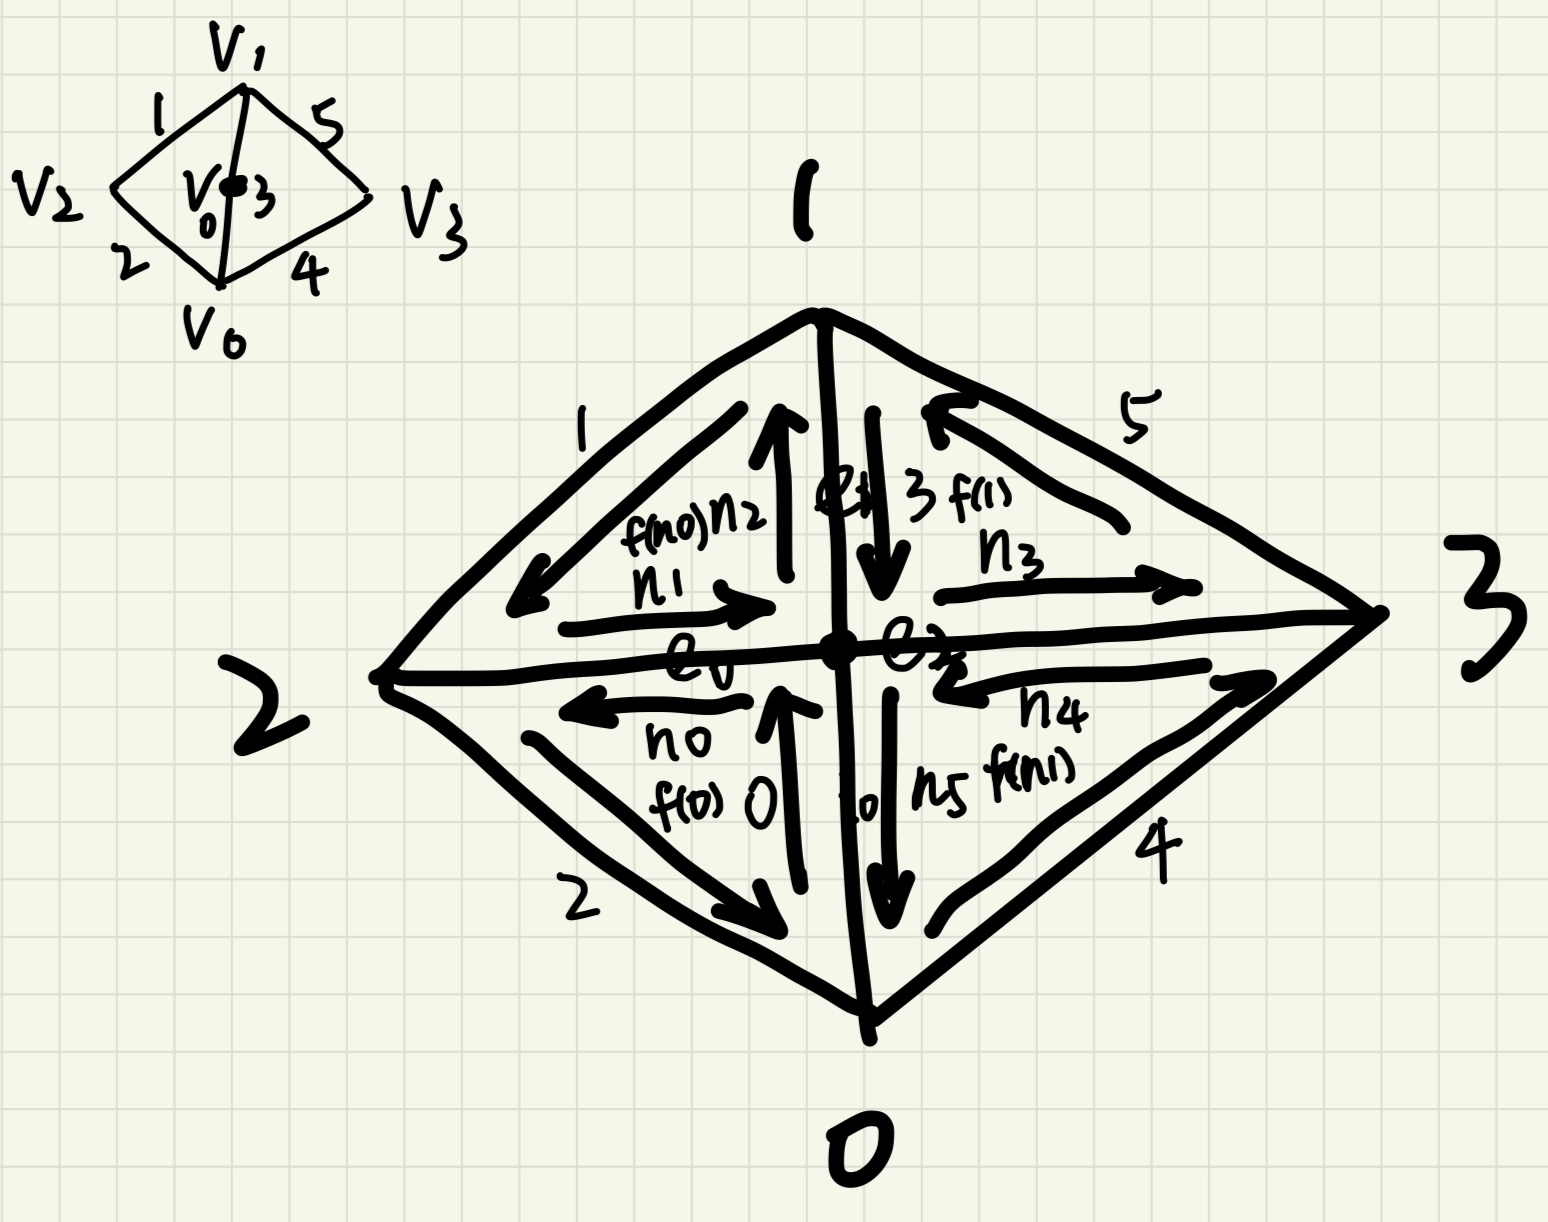 V1
1
5
V2
V0
3
V3
2
4
V0
1
1
5
f(n0) n2
e1
3 f(1)
n1
n3
3
2
e0
e2
n0
n4
f(0) 0
n5 f(n1)
4
2
0